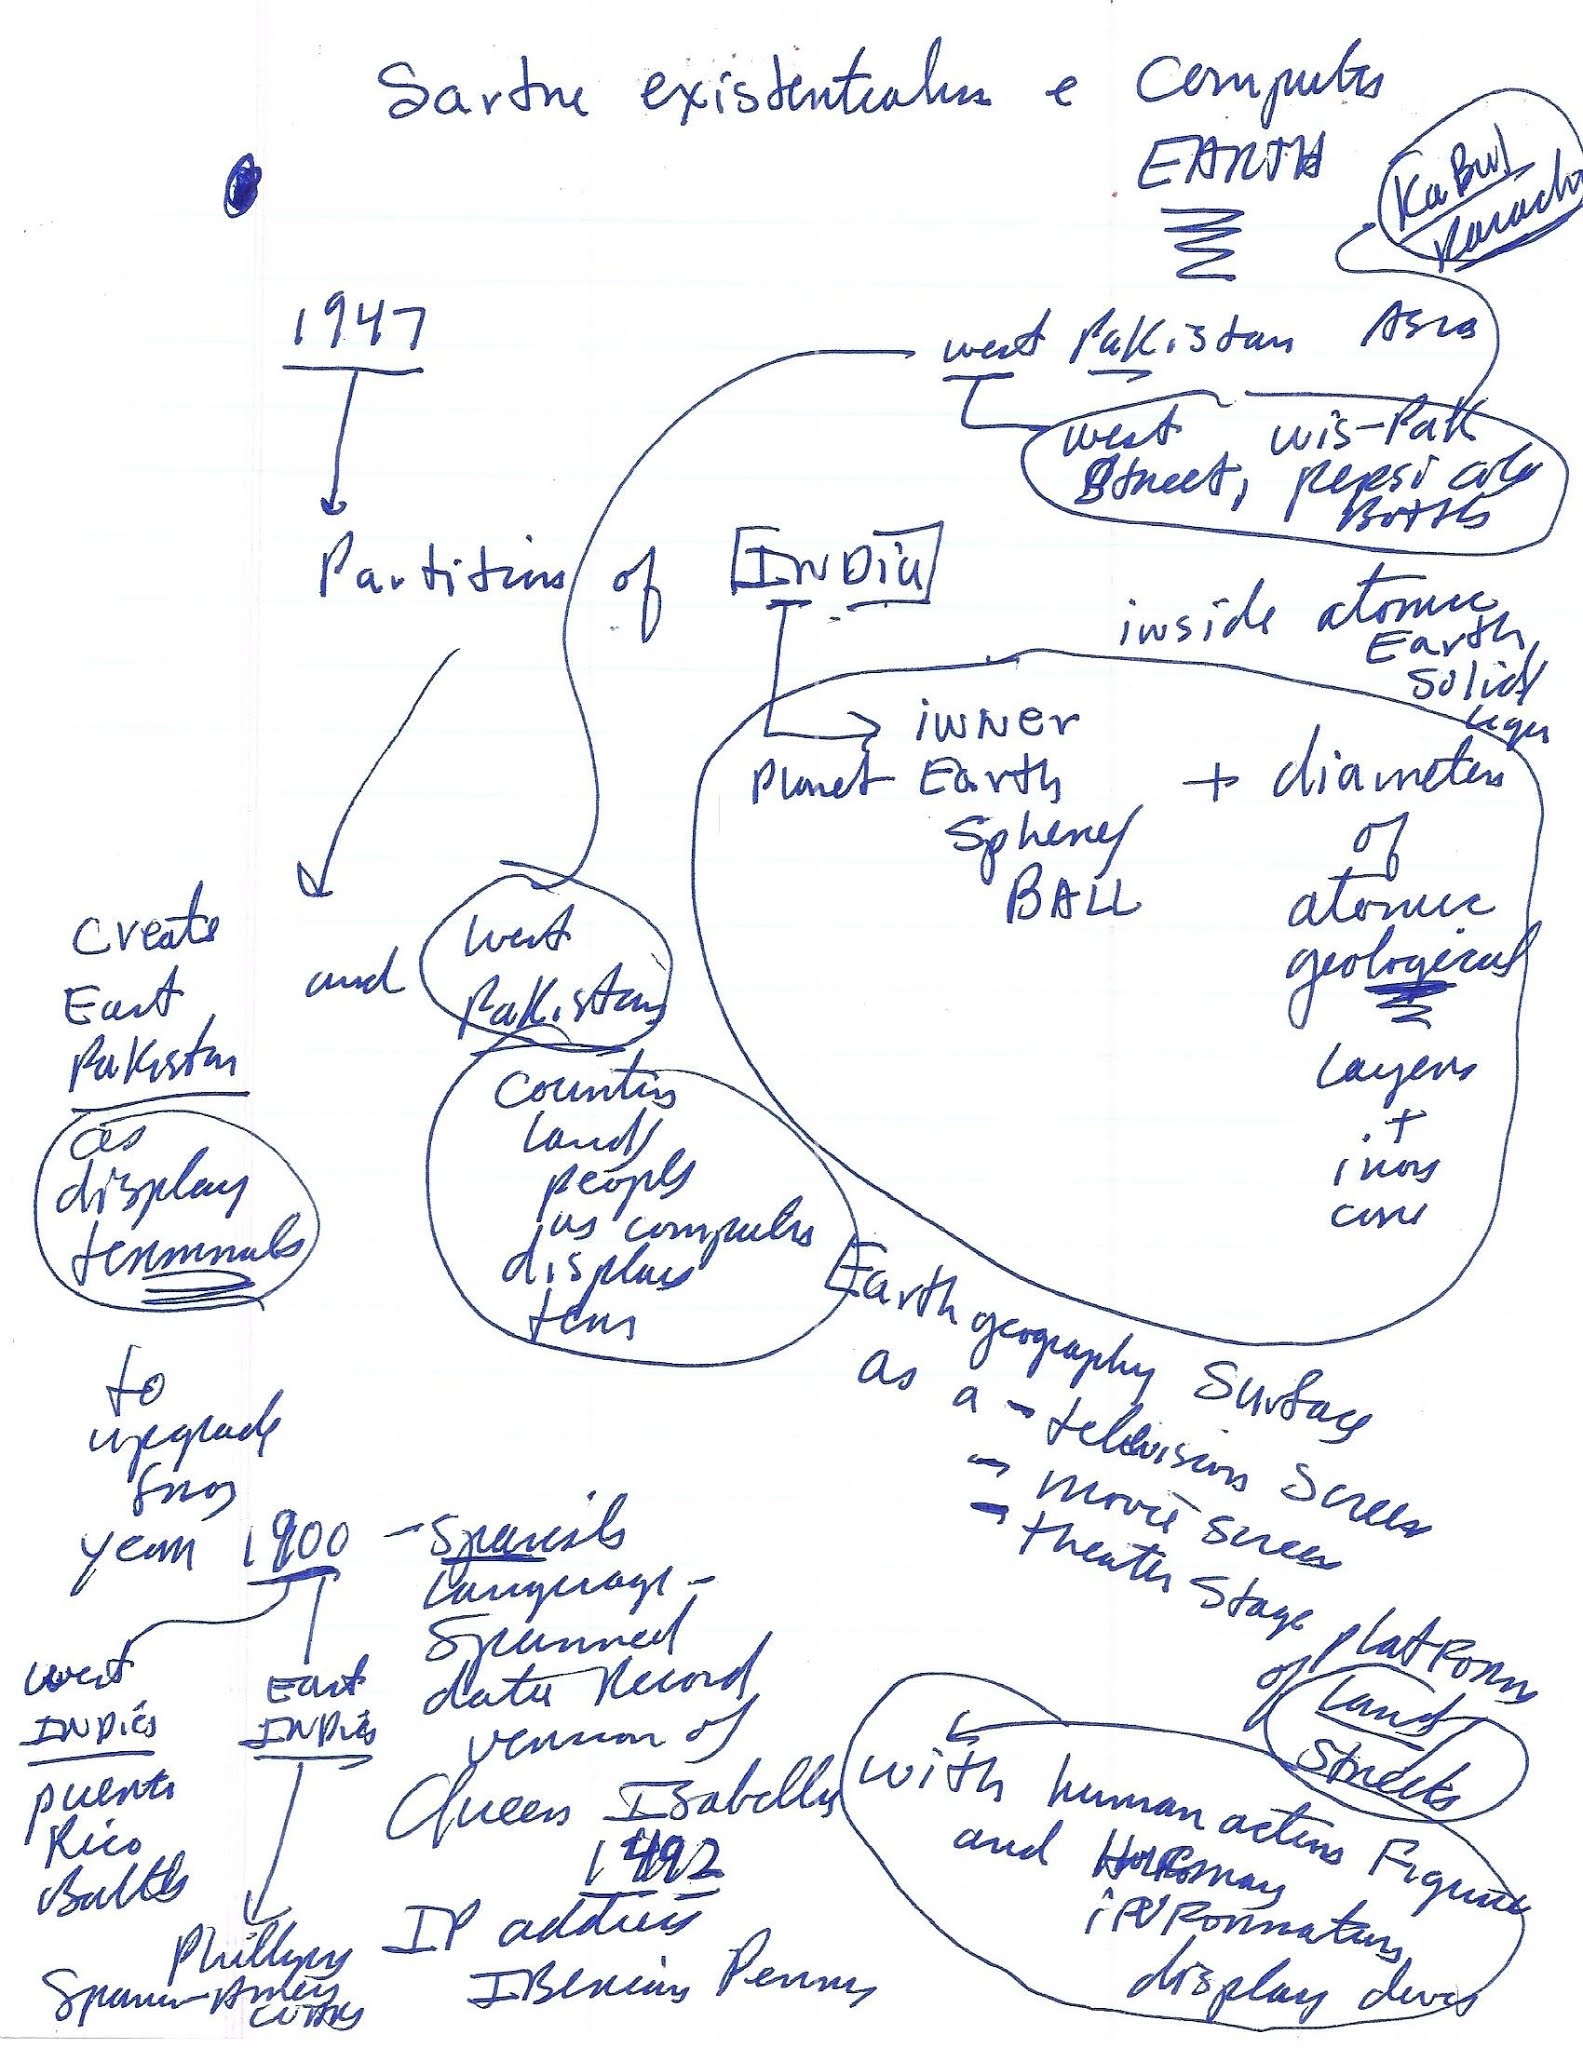 Sartre existentialism e Computer
EARTH
KaBul
Karachi
1947
west Pakistan Asia
west wis-Pak
Street, pepsi cola
Bottle
Partitions of INDia
inside atomic
Earth
Solid
layer
inner
Planet Earth + diameters
Sphere/ of
BALL atomic
geological
Layers
+
iron
core
Create
East
Pakistan
and west
Pakistan
as
display
terminals
Countries
land/
people
as computer
display
Earth geography Surface
as a - television Screen
- movie screen
- theater Stage
platForm
of Land/
Streets
to
upgrade
from
year 1900 - Spanish
Language -
Spanned
data Record
version of
Queen Isabella
1492
IP address
IBerian
west
INDies
puerto
Rico
East
INDies
with human action Figure
and
inFormation
display